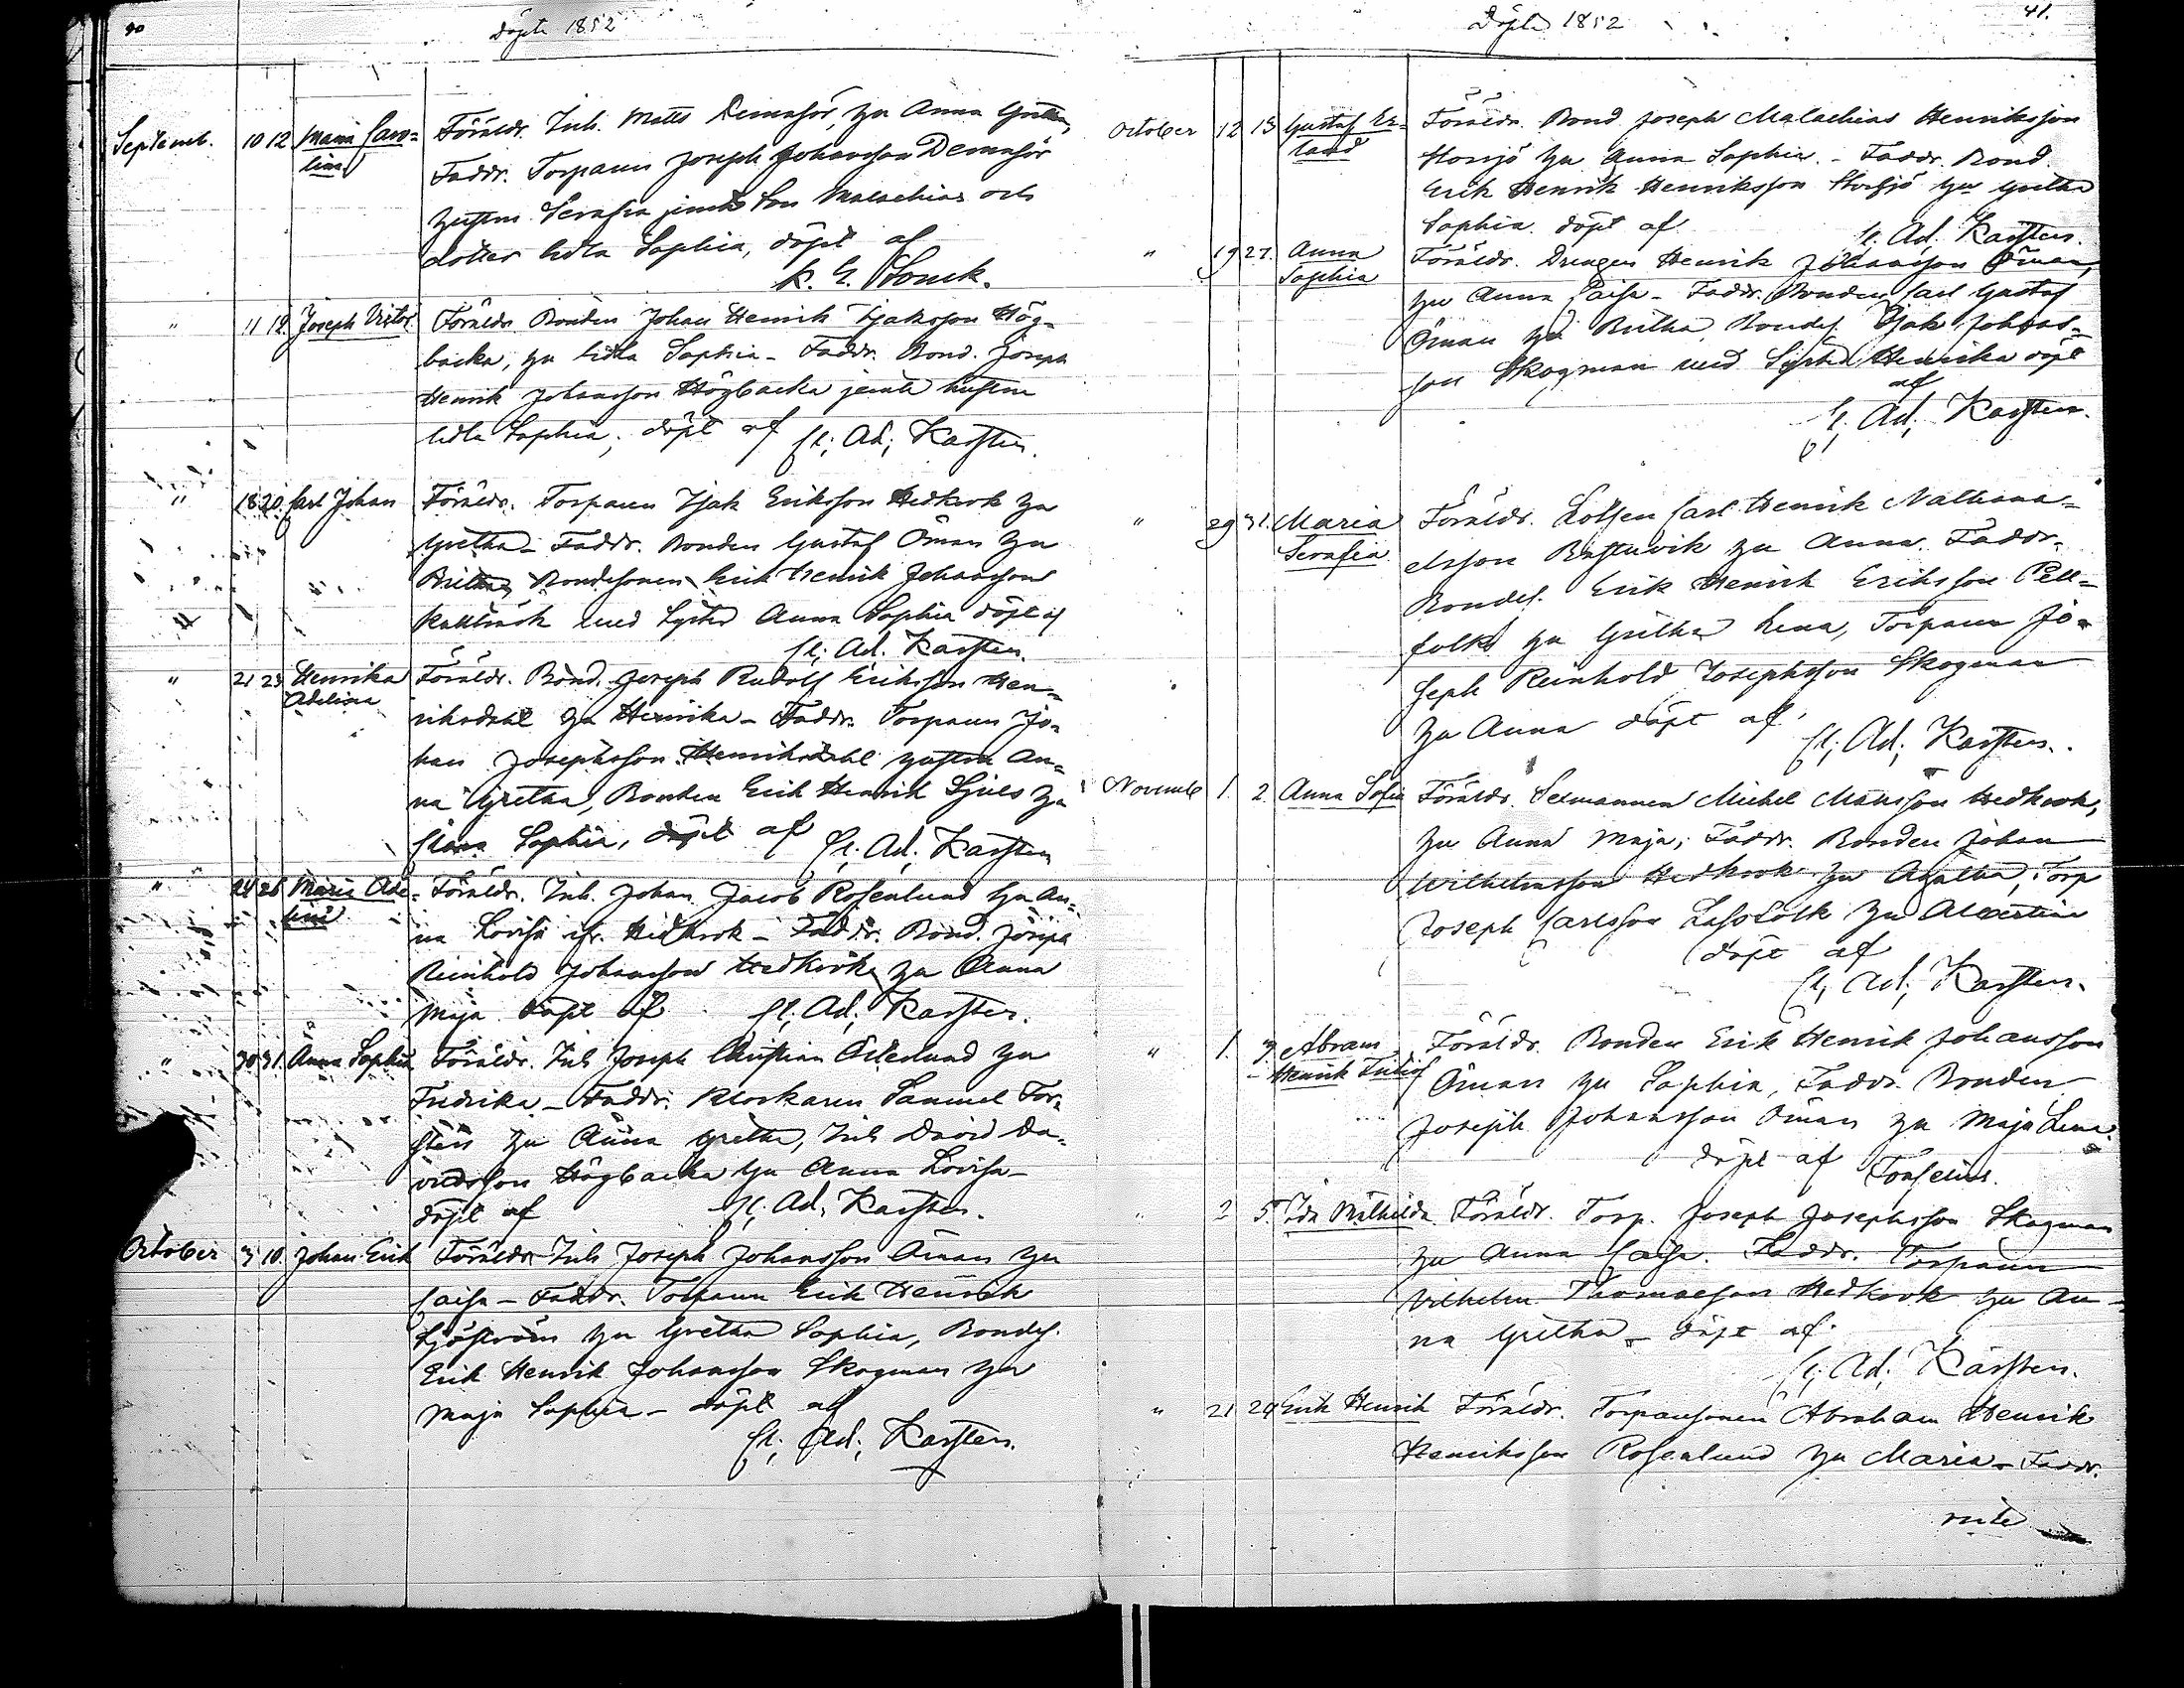 40 Döpte 1852
Septemb. 10 12 Maria Caro-
lina
Föräldr. Inh. Matts Demasör, hu Anna Gretha,
Faddr. Torparen Joseph Johansson Demasör
hustrun Serafia jemte Son Malachias och
dotter Lidla Sophia, döpt af
K. E. Sonck.
" 11 12. Joseph Victor. Föräldr. Bonden Johan Henrik Isaksson Hög-
backa, hu Lidla Sophia - Faddr. Bond. Joseph
Henrik Johansson Högbacka jemte hustrun
Lidla Sophia, döpt af Cl; Ad; Karsten.
" 18 20. Carl Johan Föräldr. Torparen Isak Eriksson Hedkrok hu
Gretha - Faddr. Bonden Gustaf Öman hu
Britha, Bondesonen Erik Henrik Johansson
med Syster Anna Sophia döpt af
Cl; Ad. Karsten.
" 21 23 Henrika
Adelina
Föräldr. Bond. Joseph Rudolf Eriksson Hen-
riksdahl hu Henrika - Faddr. Torparen Jo-
han Josephsson Henriksdahl hustrun An-
na Gretha, Bonden Erik Henrik hu
Sophia, döpt af Cl; Ad. Karsten
" 24 26 Maria Ade-
lina
Föräldr. Inh. Johan Jacob Rosenlund hu An-
na Lovisa ifr. Hedkrok - Faddr. Bond. Joseph
Reinhold Johansson Hedkrok, hu Anna
Maja döpt af Cl; Ad; Karsten.
" 30 31. Anna Sophia Föräldr. Inh Joseph Christian Österlund hu
Fredrika - Faddr. Klockaren Samuel Tor-
stén hu Anna Gretha, Inh David Da-
vidsson Högbacka hu Anna Lovisa -
döpt af Cl. Ad. Karsten.
October 7 10. Johan Erik Föräldr. Inh Joseph Johansson Öman hu
Caisa - Faddr. Torparen Erik Henrik
Sjöström hu Gretha Sophia, Bondes.
Erik Henrik Johansson Skogman hu
Maja Sophia - döpt af
Cl; Ad; Karsten.
Döpte 1852 41.
October 12 13 Gustaf Er-
land
Föräldr. Bond Joseph Malachias Henriksson
Storsjö hu Anna Sophia. - Faddr. Bond.
Erik Henrik Henriksson Storsjö hu Gretha
Sophia. döpt af Cl. Ad. Karsten.
" 19 27. Anna
Sophia
Föräldr. Drengen Henrik Johansson Öman,
hu Anna Caisa - Faddr. Bonden Carl Gustaf
Öman hu Britha, Bondes. Isak Johans-
son Skogman med Syster Henrika döpt
af
Cl. Ad; Karsten.
" 29 31. Maria
Serafia
Föräldr. Lotsen Carl Henrik Nathana-
elsson Bastuvik hu Anna. Faddr.
Bondes. Erik Henrik Eriksson Pell-
folk hu Gretha Lena, Torparen Jo-
seph Reinhold Josephsson Skogman
hu Anna döpt af.
Cl; Ad; Karsten.
Novemb 1. 2. Anna Sofia Föräldr. Michel Månsson Hedkrok,
hu Anna Maja; Faddr. Bonden Johan
Wilhelmsson Hedkrok hu Agatha, Torp
Joseph Carlsson Lassfolk hu Albertina
döpt af
Cl; Ad; Karsten.
" 1. 7. Abram
Henrik Fridiof
Föräldr. Bonden Erik Henrik Johansson
Öman hu Sophia, Faddr. Bonden
Joseph Johansson Öman hu Maja Lena
döpt af Forselius.
" 2 5. Ida Mathilda Föräldr. Torp. Joseph Josephsson Skogman
hu Anna Caisa. Faddr. Torparen
Vilhelm Thomasson Hedkrok hu An-
na Gretha - döpt af.
Cl; Ad; Karsten.
" 21 24 Erik Henrik Föräldr. Torparesonen Abraham Henrik
Henriksson Rosenlund hu Maria - Faddr.